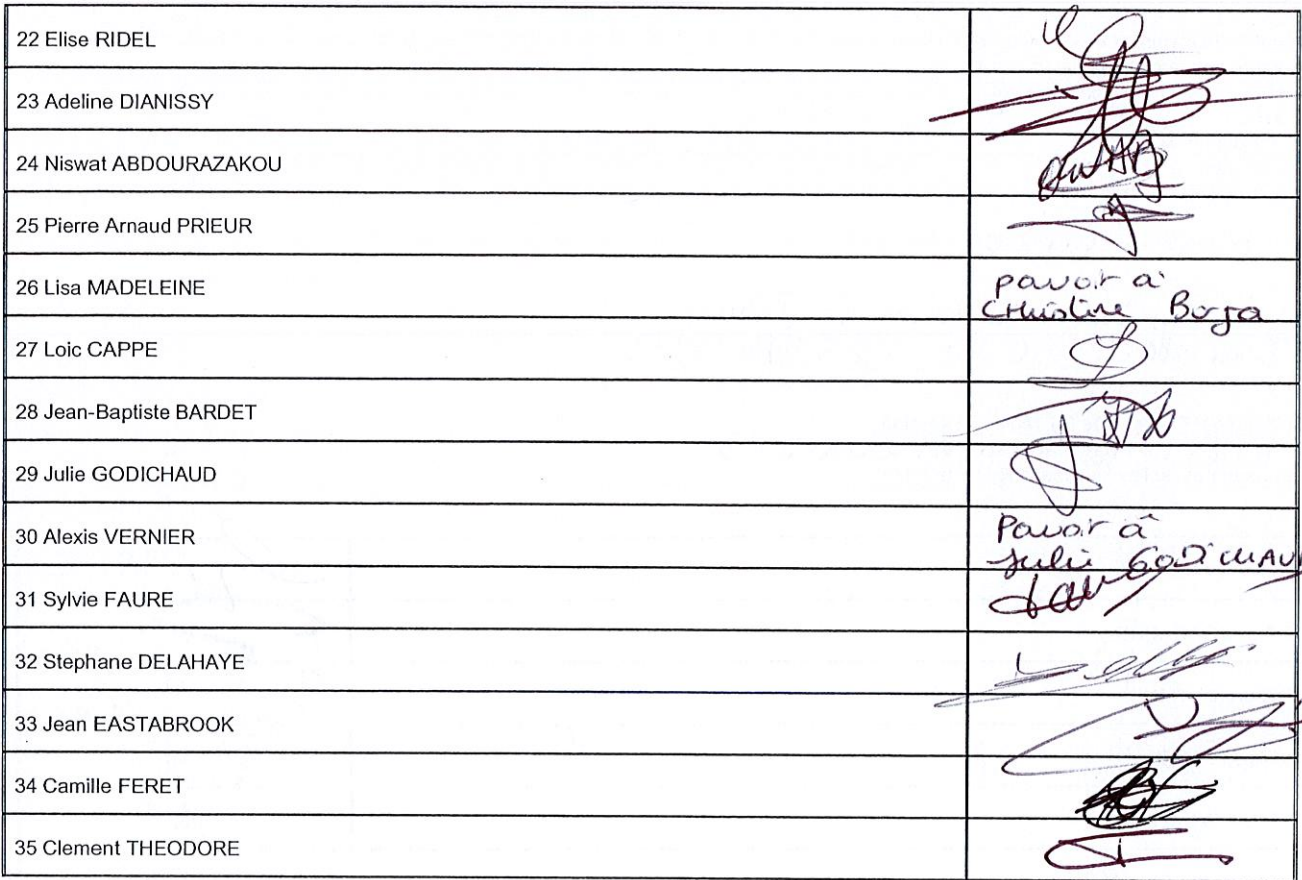 22 Elise RIDEL
23 Adeline DIANISSY
24 Niswat ABDOURAZAKOU
25 Pierre Arnaud PRIEUR
26 Lisa MADELEINE
pouvoir à
Christine Borja
27 Loic CAPPE
28 Jean-Baptiste BARDET
29 Julie GODICHAUD
30 Alexis VERNIER
Pouvoir à
Julie GODICHAU
31 Sylvie FAURE
32 Stephane DELAHAYE
33 Jean EASTABROOK
34 Camille FERET
35 Clement THEODORE